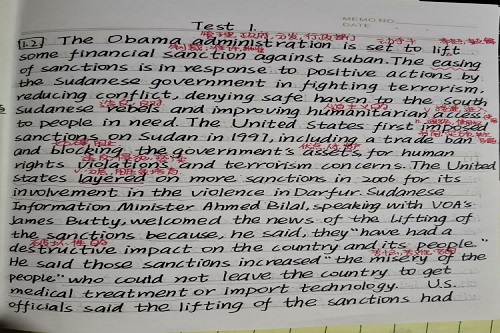 Test 1.
MEMO NO.
DATE
1.2 The Obama administration is set to lift
some financial sanction against suban. The easing
of sanctions is in response to positive actions by
the Sudanese government in fighting terrorism,
reducing conflict, denying safe haven to the South
Sudanese rebels and improving humanitarian access
to people in need. The United States first imposed
sanctions on Sudan in 1997, including a trade ban
and blocking the government's assets, for human
rights violations and terrorism concerns. The United
States layered on more sanctions in 2006 for its
involvement in the violence in Darfur. Sudanese
Information Minister Ahmed Bilal, speaking with VOA's
James Butty, welcomed the news of the lifting of
the sanctions because, he said, they "have had a
破坏性的
destructive impact on the country and its people."
He said those sanctions increased "the misery of the
people" who could not leave the country to get
medical treatment or import technology. U.S.
officials said the lifting of the sanctions had